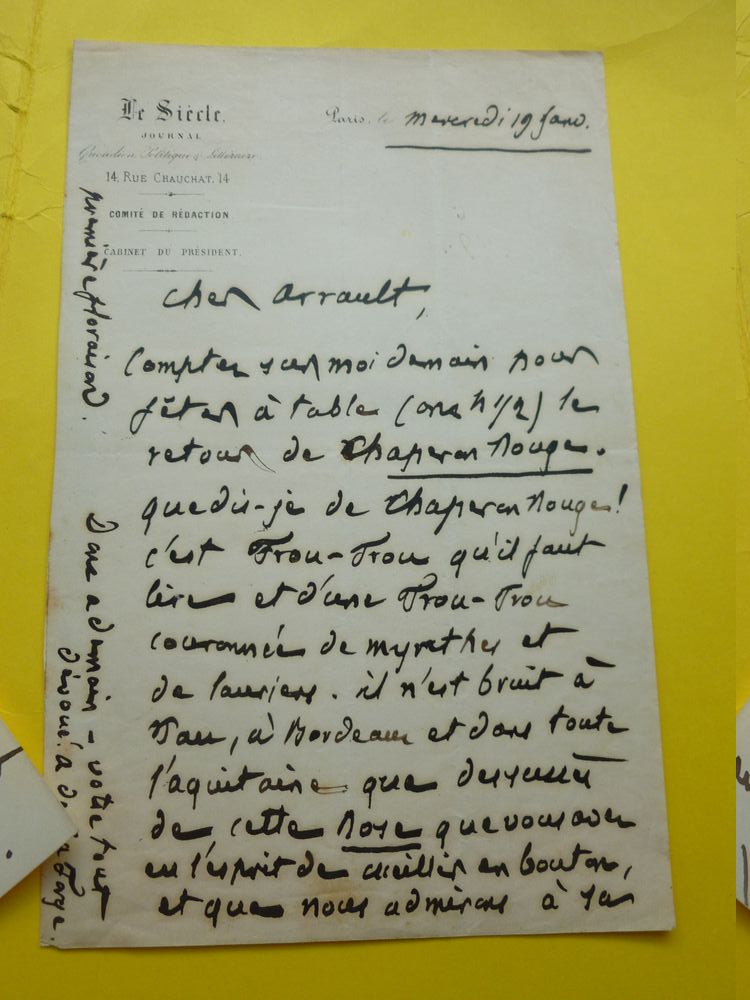 Le Siècle.
JOURNAL
Quotidien, Politique & Littéraire
14, RUE CHAUCHAT, 14
COMITÉ DE RÉDACTION
CABINET DU PRÉSIDENT.
Paris, le mercredi 19 Janv.
Cher Arrault,
Comptez sur moi demain pour
fêter à table (onze h 1/2) le
retour de Chaperon Rouge.
que dis-je de Chaperon Rouge!
c'est Frou-Frou qu'il faut
lire et d'une Frou-Frou
couronnée de myrthes et
de lauriers. il n'est bruit à
Pau, à Bordeaux et dans toute
l'aquitaine que des succès
de cette Rose que vous avez
eu l'esprit de cueillir en bouton,
et que nous admirons à sa
première floraison.
Donc a demain - votre tout
dévoué A. de la Forge.